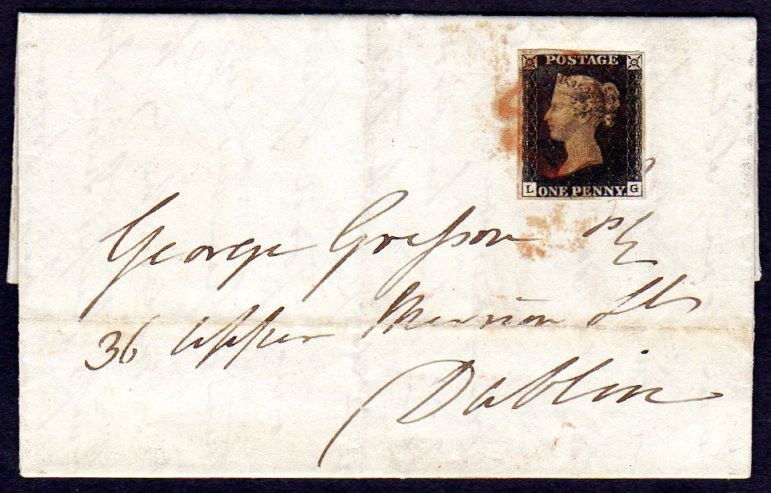 POSTAGE
L G
ONE PENNY.
George Grefson Esq
36 Upper Merrion St
Dublin